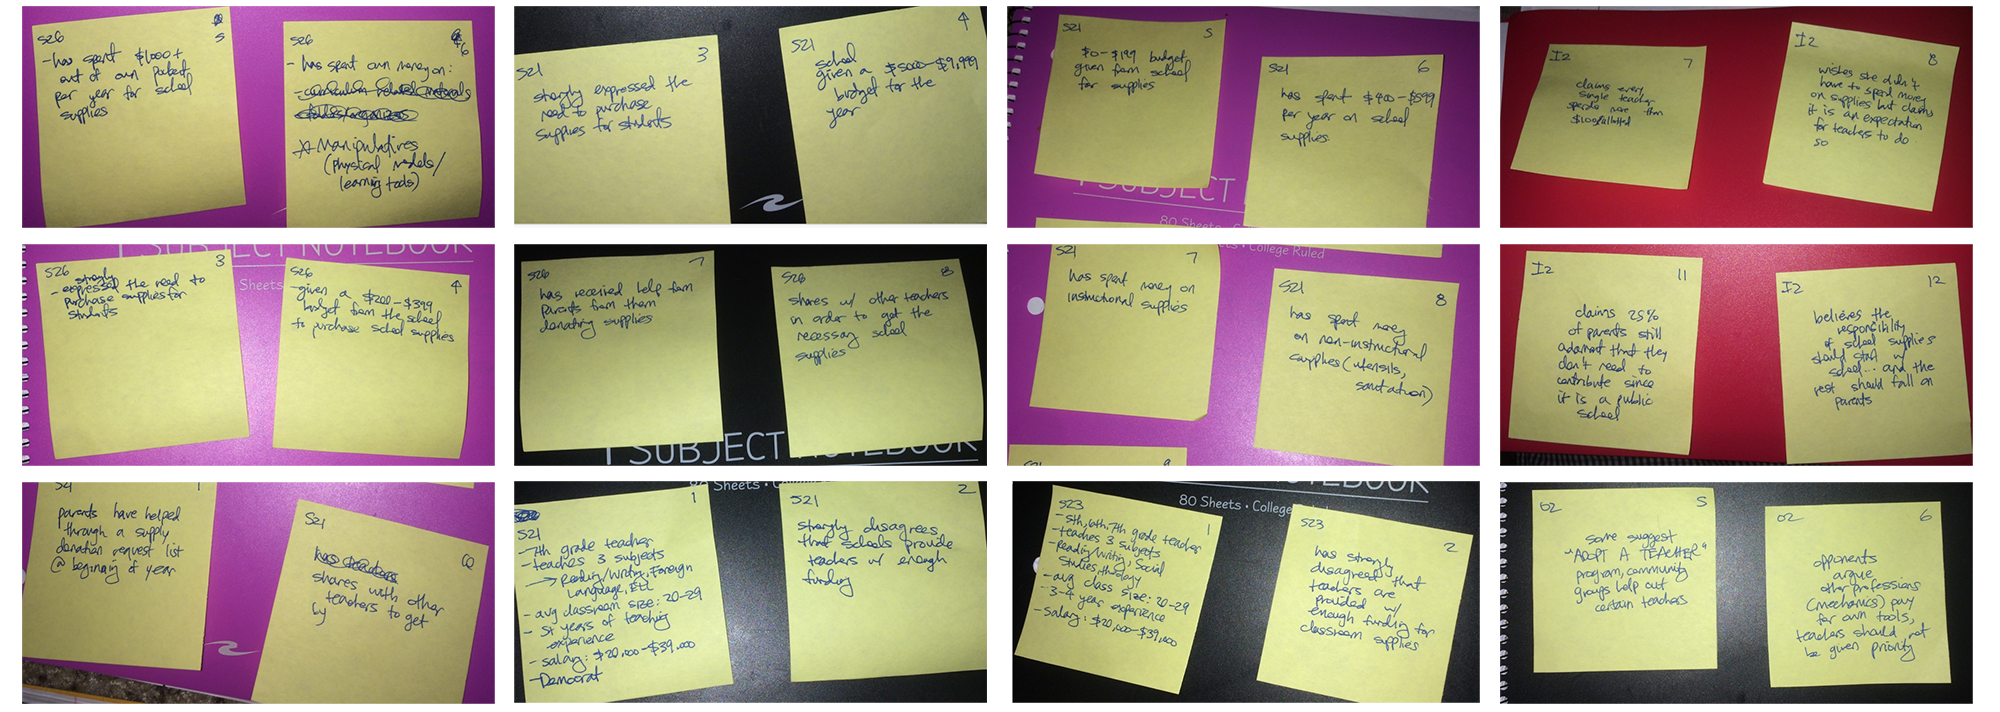 S26
5
- has spent $1000+
out of own pocket
per year for school
supplies
S26
6
- has spent own money on:
- curriculum related materials
* Manipulatives
(physical models/
learning tools)
S21
3
strongly expressed the
need to purchase
supplies for students
S21
4
school
given a $5000-$9,999
budget for the
year
S21
5
$0-$199 budget
given from school
for supplies
S21
6
has spent $400-$599
per year on school
supplies.
1 SUBJECT
80 Sheets
I2
7
claims every
single teacher
spends more than
$100 allotted
I2
8
wishes she didn't
have to spend money
on supplies but claims
it is an expectation
for teachers to do
so
1 SUBJECT NOTEBOOK
Sheets
S26
3
strongly
- expressed the need to
purchase supplies for
students
S26
4
- given a $200-$399
budget from the school
to purchase school supplies
S26
7
has received help from
parents from them
donating supplies
S26
8
shares w/ other teachers
in order to get the
necessary school
supplies
1 SUBJECT NOTEBOOK
Sheets • College Ruled
S21
7
has spent money on
instructional supplies
S21
8
has spent money
on non-instructional
supplies (utensils,
sanitation)
S21
9
I2
11
claims 25%
of parents still
adamant that they
don't need to
contribute since
it is a public
school
I2
12
believes the
responsibility
of school supplies
should start w/
school... and the
rest should fall on
parents
parents have helped
through a supply
donation request list
@ beginning of year
S21
10
shares with other
teachers to get
by
80 Sheets
S21
1
- 7th grade teacher
- teaches 3 subjects
→ Reading/Writing, Foreign
Language, ELL
- avg classroom size: 20-29
- 5+ years of teaching
experience
- salary: $20,000-$39,000
- Democrat
S21
2
strongly disagrees
that schools provide
teachers w/ enough
funding
NOTEBOOK
80 Sheets • College
S23
1
- 5th, 6th, 7th grade teacher
- teaches 3 subjects
- Reading/Writing, Social
Studies, theology
- avg class size: 20-29
- 3-4 year experience
- Salary: $20,000-$39,000
S23
2
has strongly
disagreed that
teachers are
provided w/
enough funding for
classroom supplies
O2
5
some suggest
"ADOPT A TEACHER"
program, community
groups help out
certain teachers
O2
6
opponents
argue
other professions
(mechanics) pay
for own tools,
teachers should not
be given priority